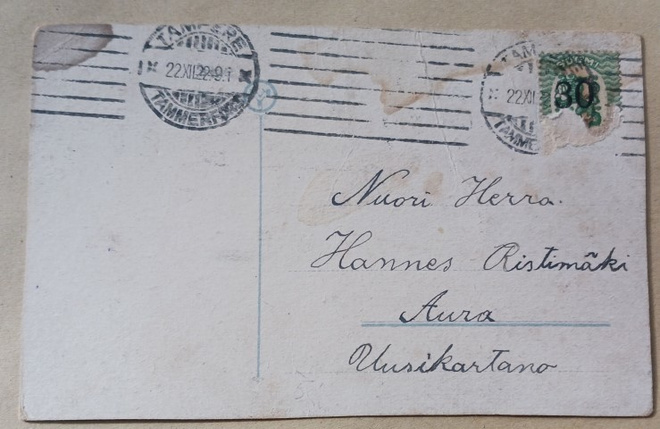 TAMPERE
22XII
TAMMERFORS
22XII
30
Nuori Herra.
Hannes Ristimäki
Aura
Uusikartano